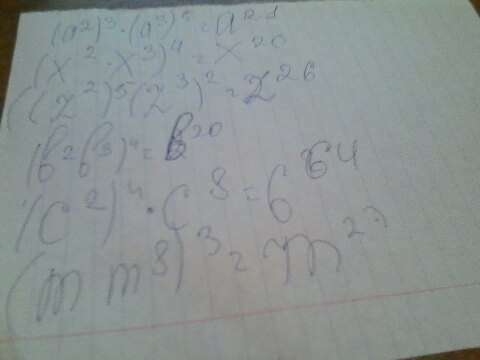 (a²)³·(a³)⁵=a²¹
(x²·x³)⁴=x²⁰
((z²)⁵(z³)²=z²⁶
(b²b³)⁴=b²⁰
(c²)⁴·c⁸=6⁶⁴
(m m⁸)³=m²⁷